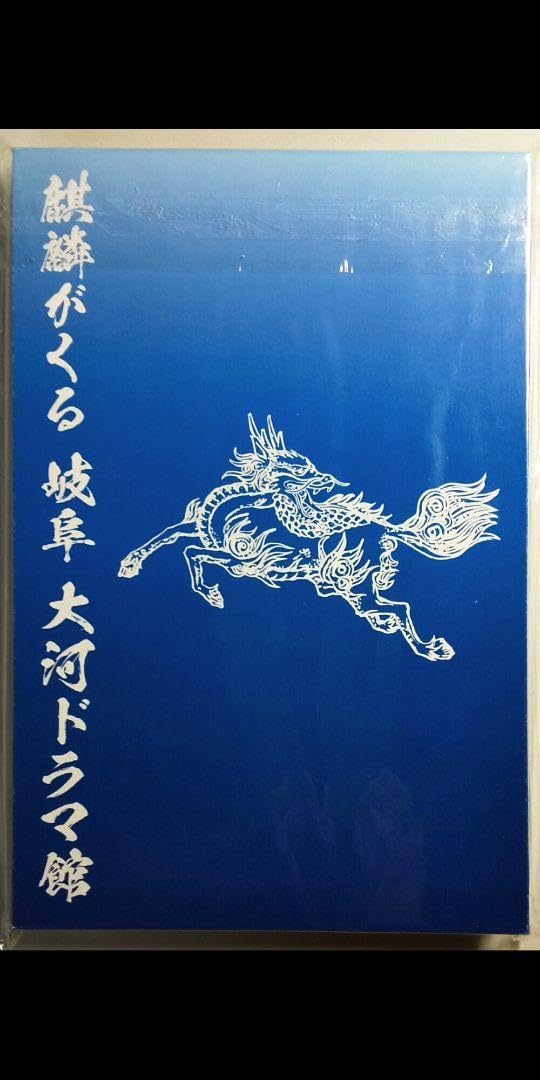 麒麟がくる 岐阜 大河ドラマ館